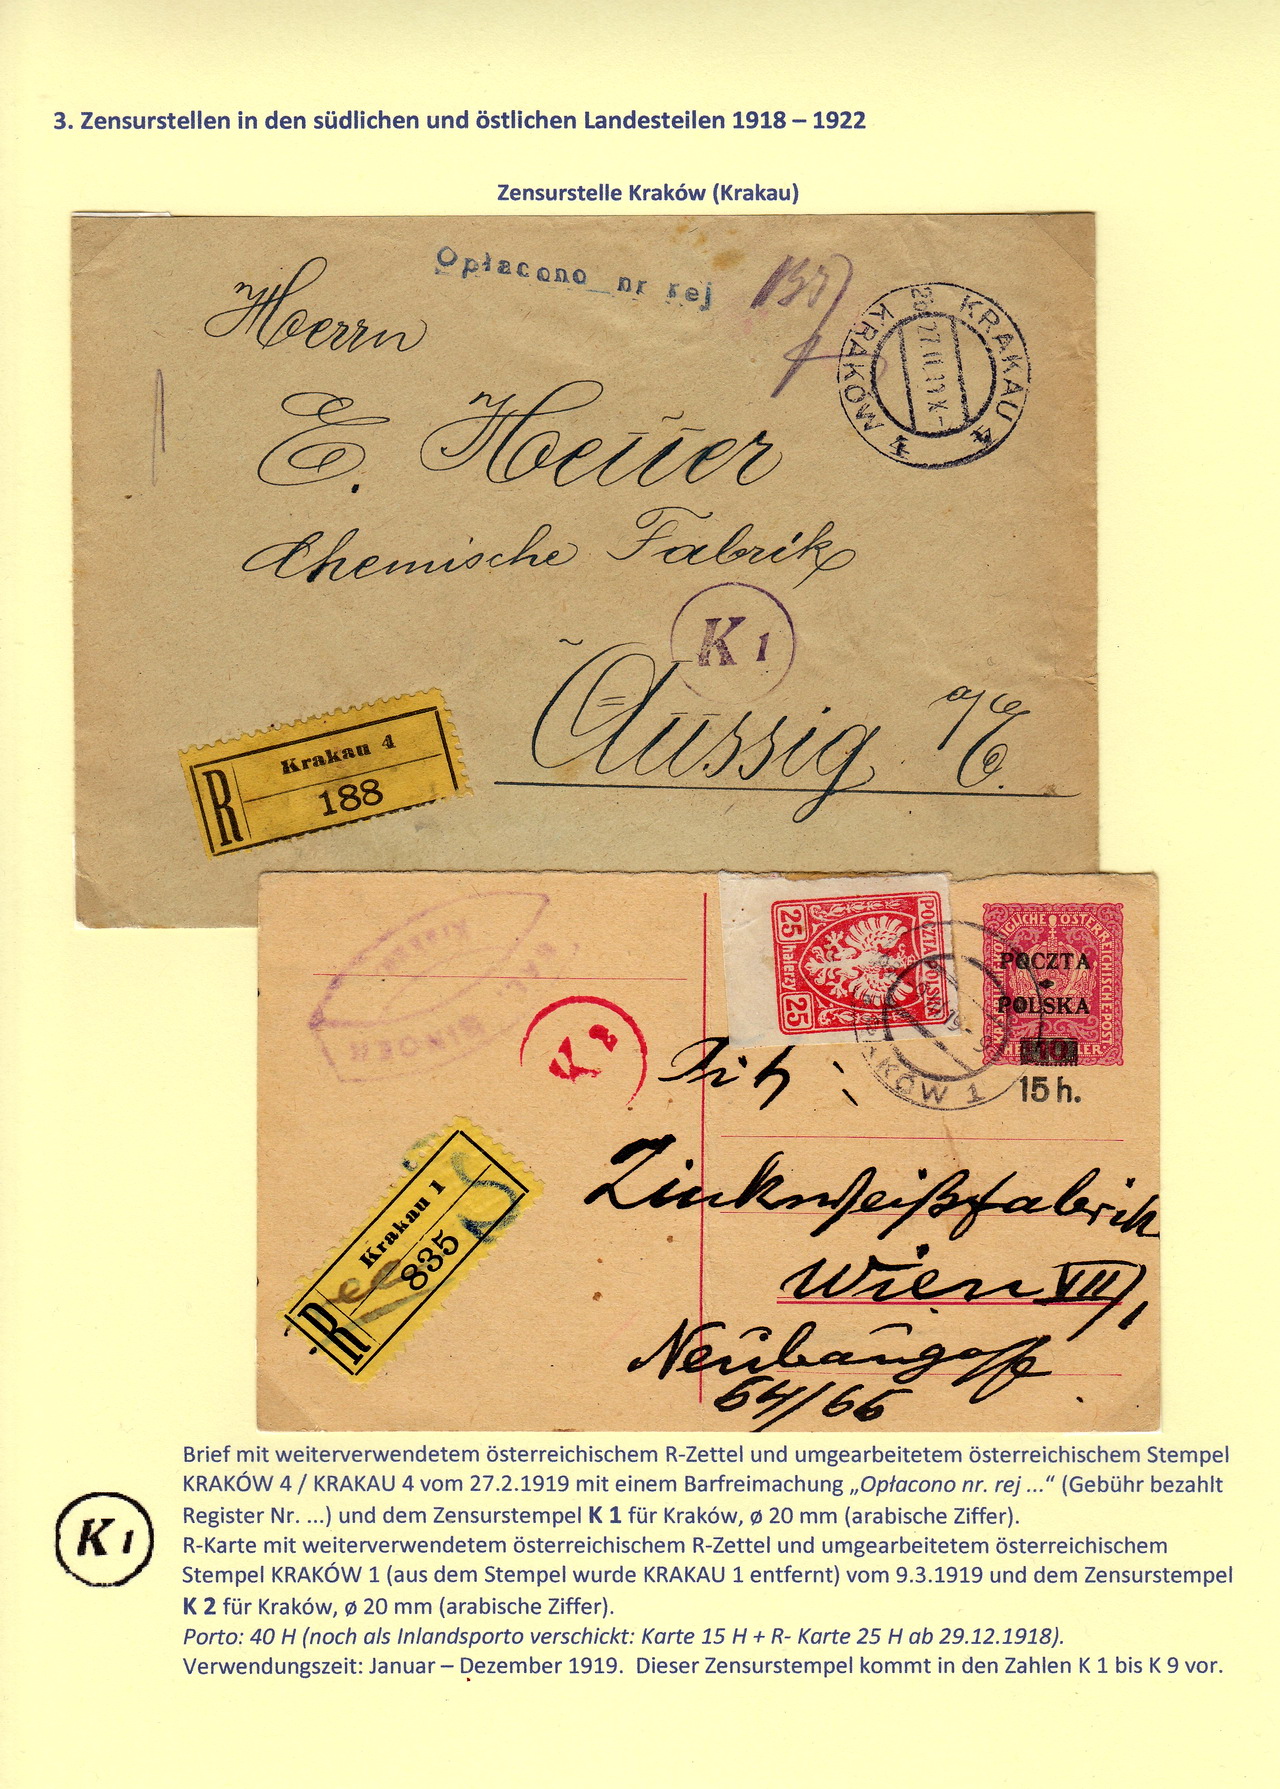 3. Zensurstellen in den südlichen und östlichen Landesteilen 1918 – 1922
Zensurstelle Kraków (Krakau)
Opłacono nr rej
Herrn
KRAKAU 4
KRAKÓW 4
27 II.19 X-
E. Heuer
Chemische Fabrik
K 1
Aussig a/E.
R
Krakau 4
188
POCZTA POLSKA
25 halerzy 25
KÖNIGLICHE ÖSTERREICHISCHE POST
HELLER
POCZTA
POLSKA
15 h.
KRAKÓW 1
K 2
R
Krakau 1
835
Zinkweißfabrik
Wien VII/1
Neubaugasse
64/66
Brief mit weiterverwendetem österreichischem R-Zettel und umgearbeitetem österreichischem Stempel
KRAKÓW 4 / KRAKAU 4 vom 27.2.1919 mit einem Barfreimachung „Opłacono nr. rej ...“ (Gebühr bezahlt
Register Nr. ...) und dem Zensurstempel K 1 für Kraków, ø 20 mm (arabische Ziffer).
K 1
R-Karte mit weiterverwendetem österreichischem R-Zettel und umgearbeitetem österreichischem
Stempel KRAKÓW 1 (aus dem Stempel wurde KRAKAU 1 entfernt) vom 9.3.1919 und dem Zensurstempel
K 2 für Kraków, ø 20 mm (arabische Ziffer).
Porto: 40 H (noch als Inlandsporto verschickt: Karte 15 H + R- Karte 25 H ab 29.12.1918).
Verwendungszeit: Januar – Dezember 1919. Dieser Zensurstempel kommt in den Zahlen K 1 bis K 9 vor.